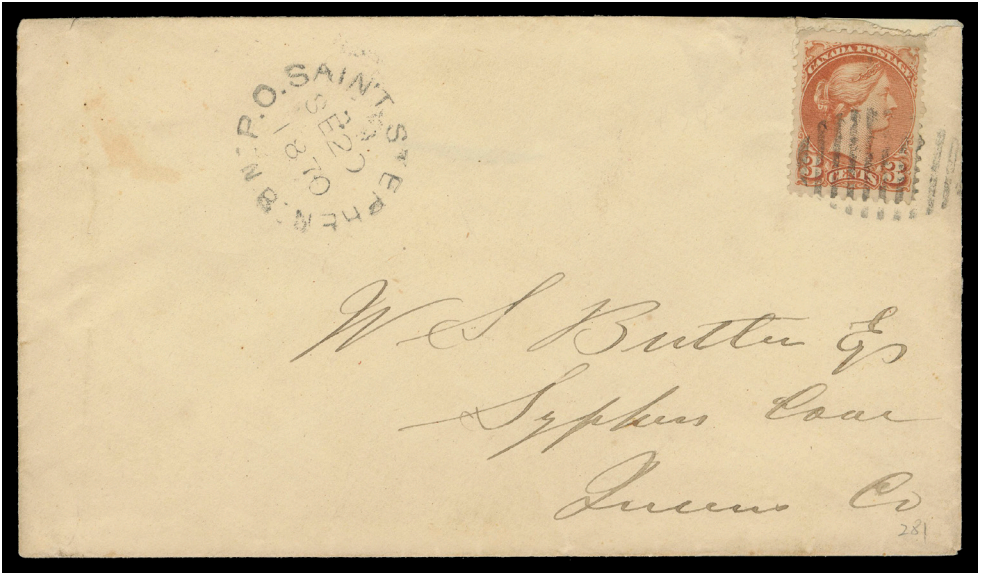 P.O. SAINT STEPHEN. N.B.
SE 22
1870
CANADA POSTAGE
3 CENTS 3
W S Butler Esq
Syphers Cove
Queens Co
281